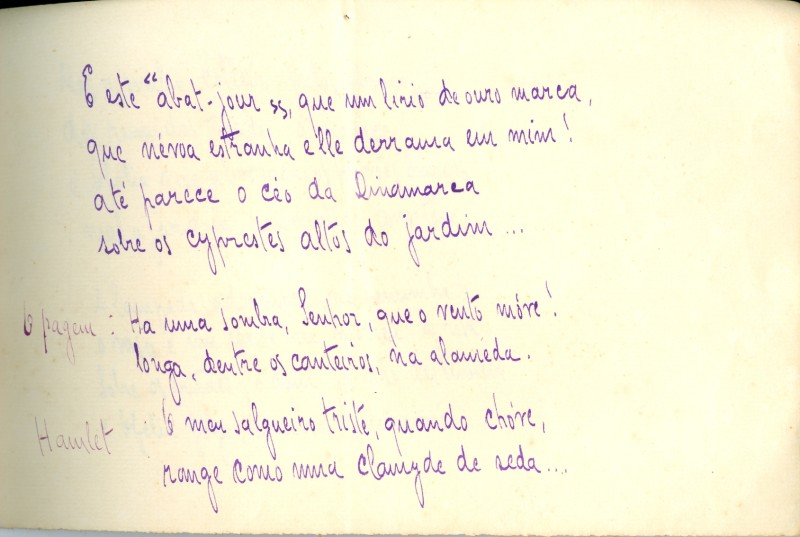 E este "abat-jour", que um lirio de ouro marca,
que névoa estranha elle derrama em mim!
até parece o céo da Dinamarca
sobre os cyprestes altos do jardim...
O pagem: Ha uma sombra, Senhor, que o vento móve!
longa, dentre os canteiros, na alameda.
Hamlet O meu salgueiro triste, quando chóve,
range como uma clamyde de seda....